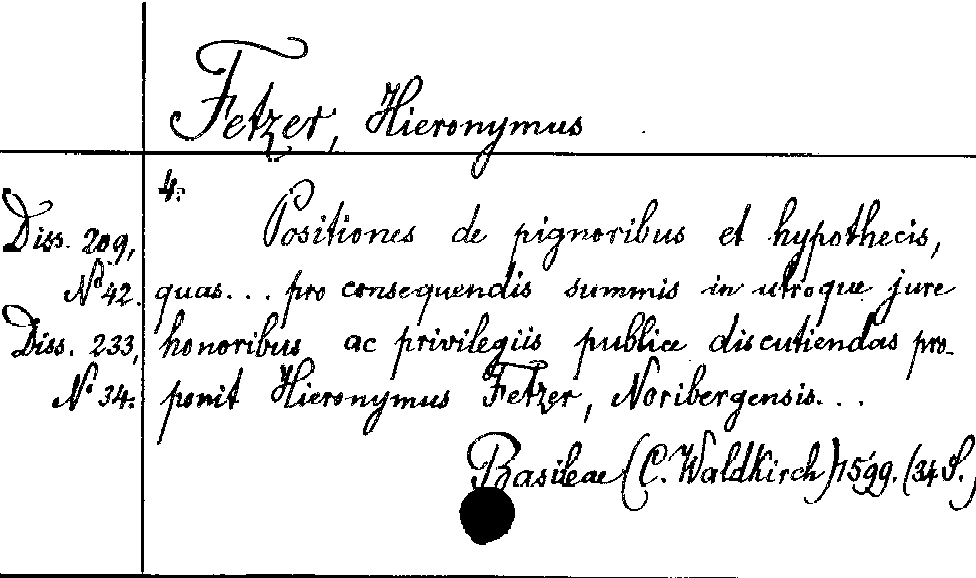 Fetzer, Hieronymus
4.
Diss. 209, Positiones de pignoribus et hypothecis,
No 42. quas... pro consequendis summis in utroque jure
Diss. 233, honoribus ac privilegiis publice discutiendas pro-
No 34. ponit Hieronymus Fetzer, Noribergensis...
Basileae (C. Waldkirch) 1599. (34 S.)